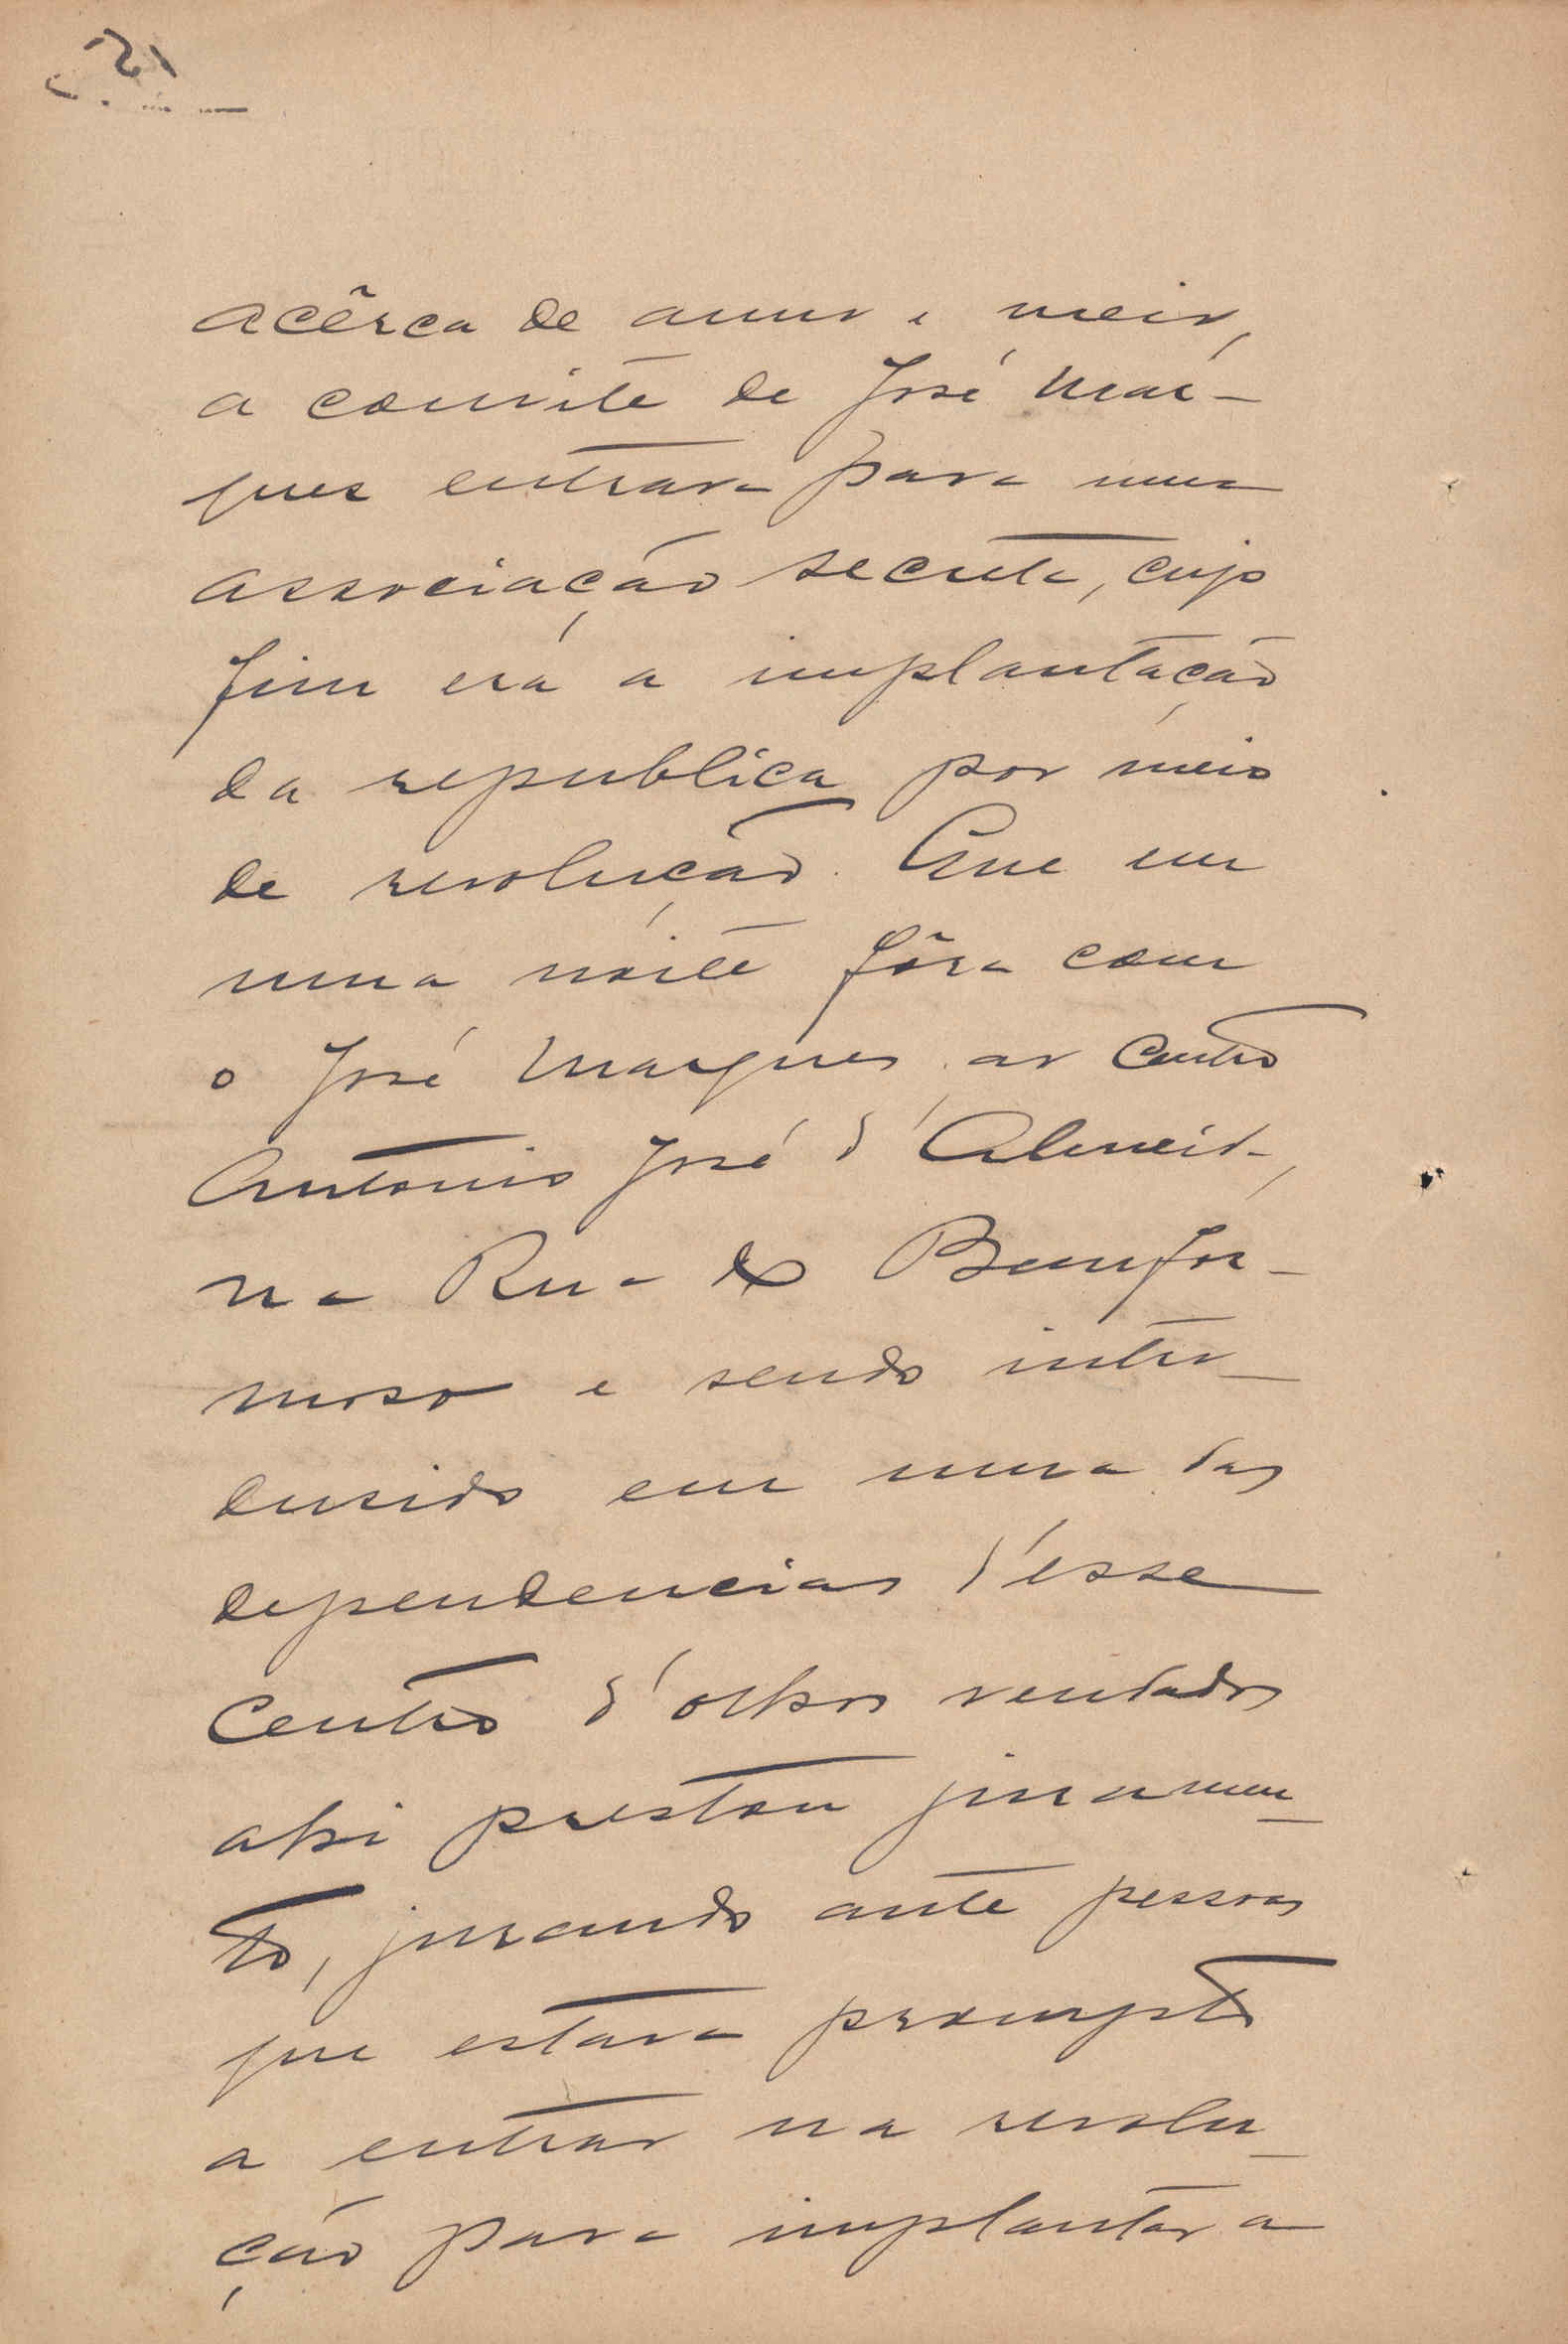 acêrca de anno e meio,
a convite de José Mar-
ques entrara para uma
associação secreta, cujo
fim era a implantação
da republica por meio
de revolução. Que em
uma noite fôra com
o José Marques ao Centro
Antonio José d'Almeida,
na Rua do Bemfor-
moso e sendo intro-
dusido em uma das
dependencias d'esse
Centro d'olhos vendados
ahi prestou juramen-
to, jurando ante pessoas
que estava prompto
a entrar na revolu-
ção para implantar a